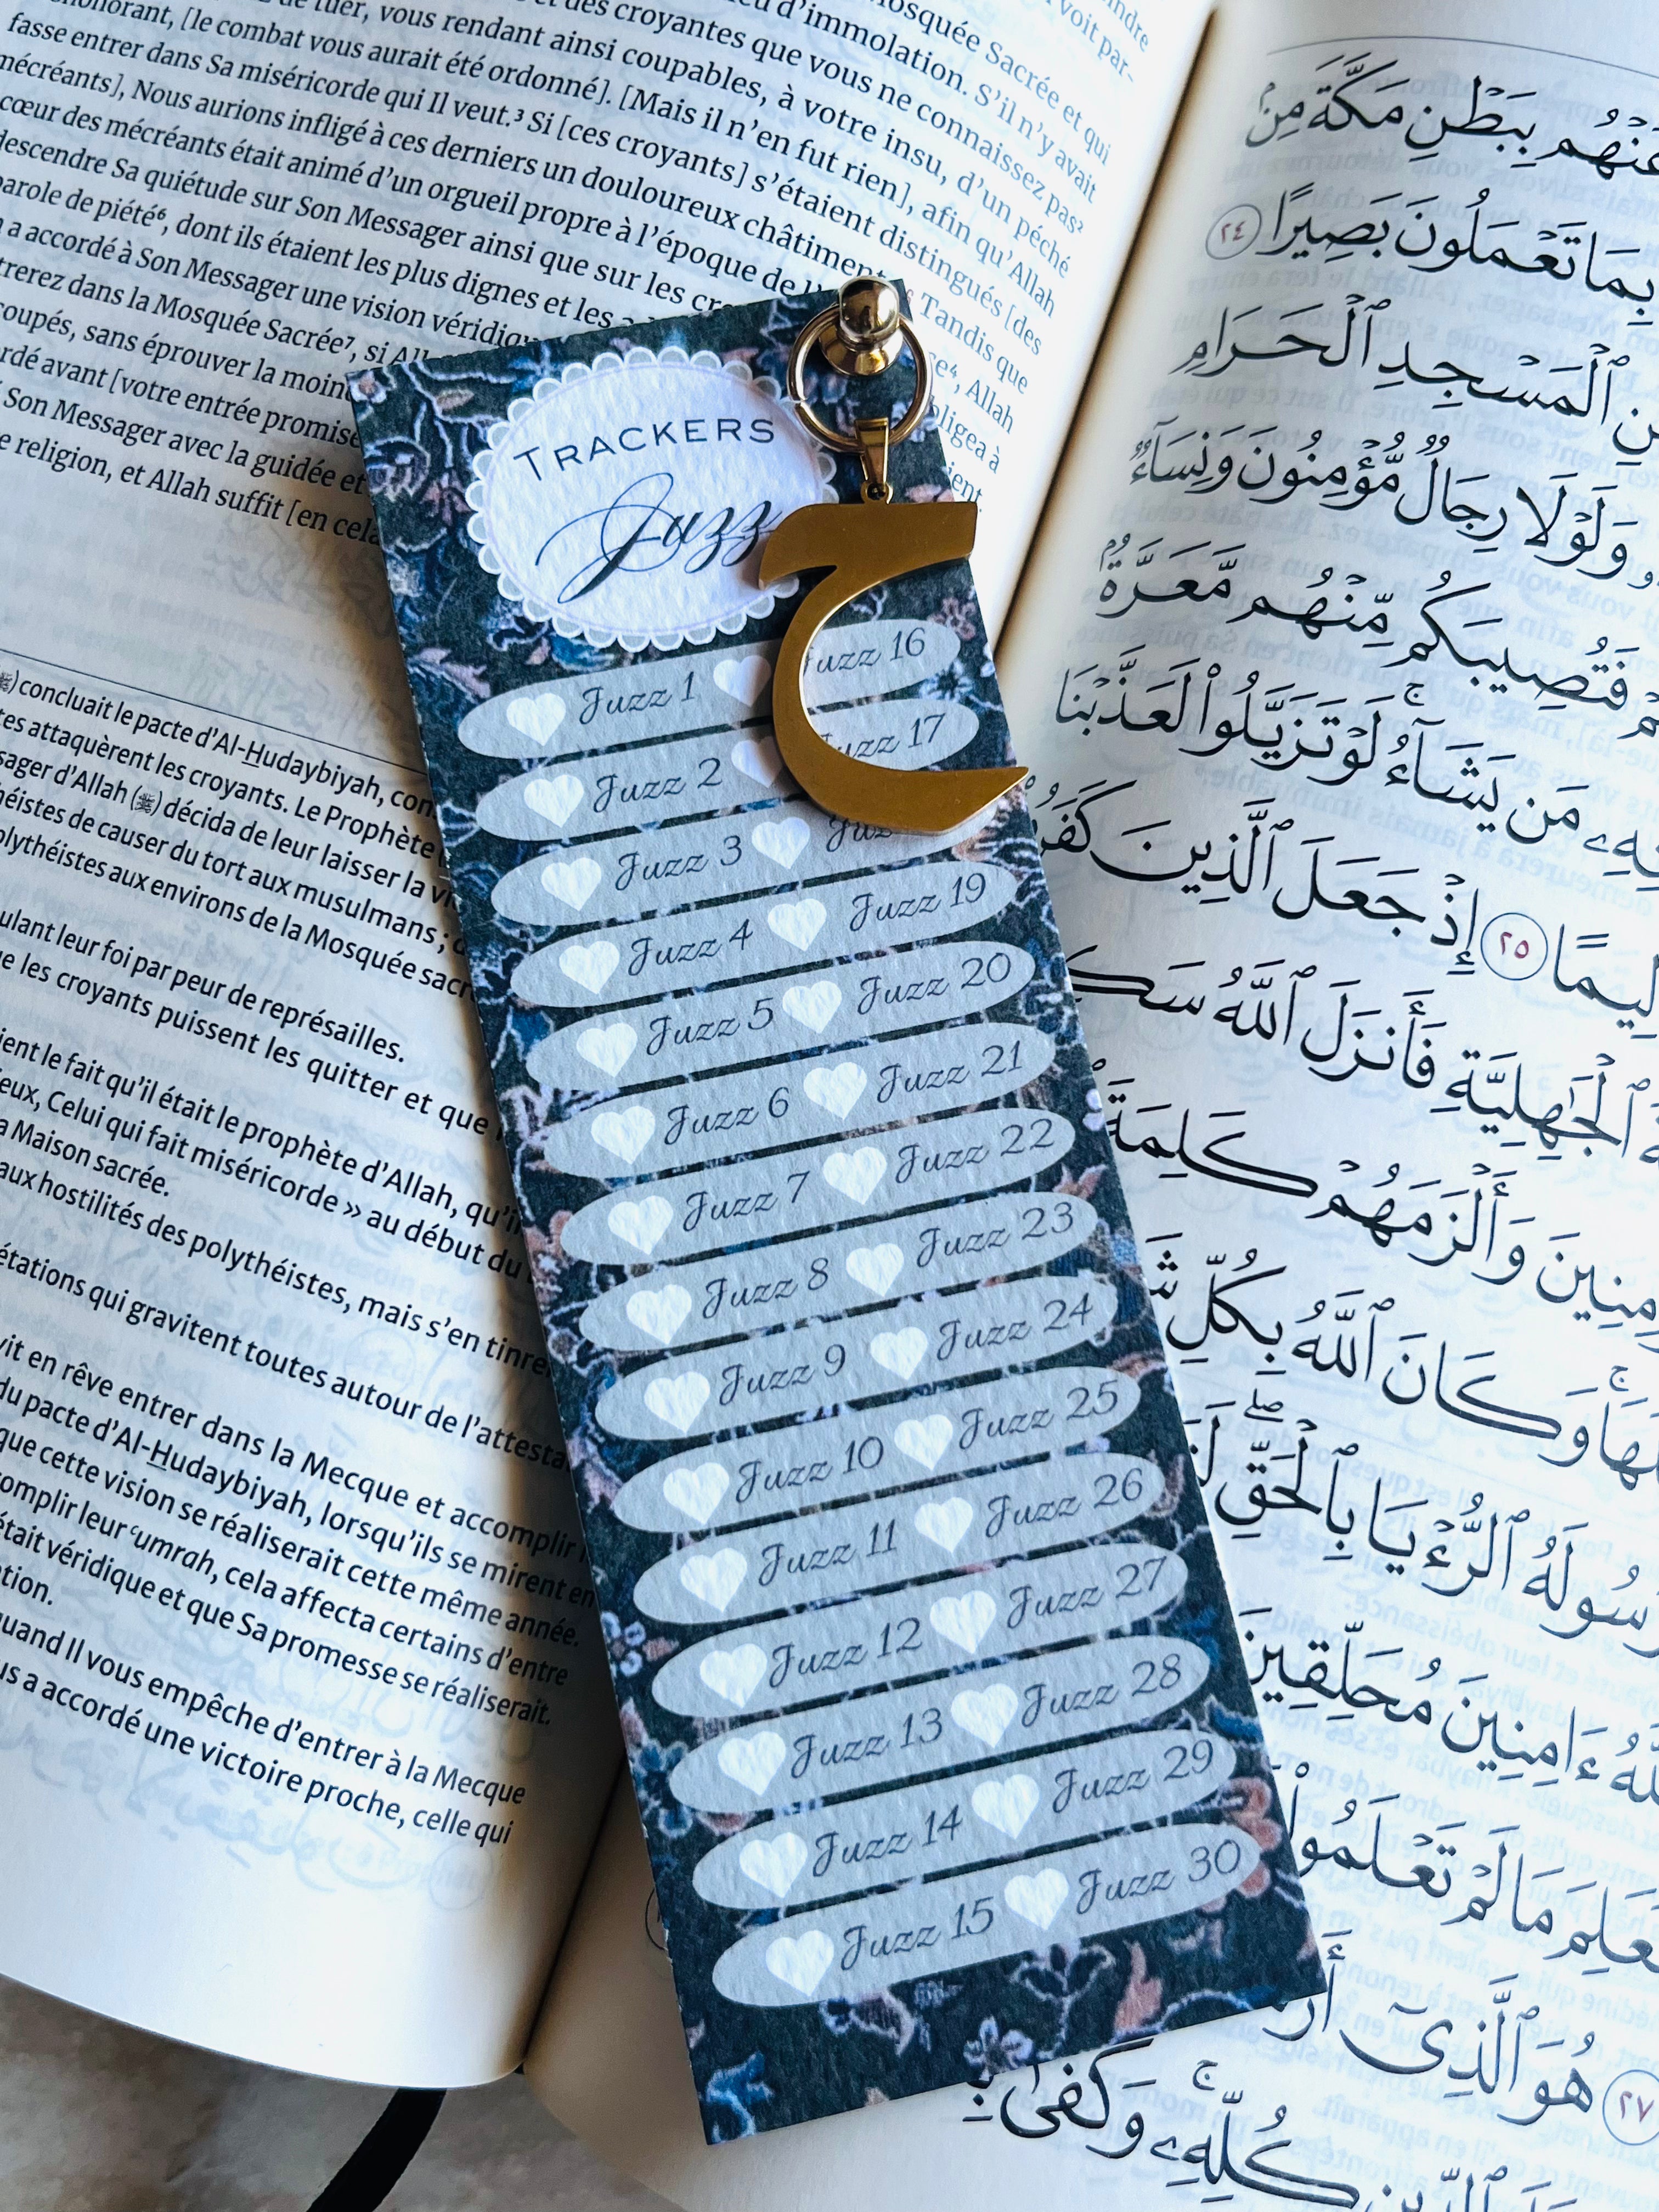 voit par-
Mosquée Sacrée et qui
d'immolation. S'il n'y avait
et des croyantes que vous ne connaissez pas²
de tuer, vous rendant ainsi coupables, à votre insu, d'un péché
[le combat vous aurait été ordonné]. [Mais il n'en fut rien], afin qu'Allah
fasse entrer dans Sa miséricorde qui Il veut.³ Si [ces croyants] s'étaient distingués [des
mécréants], Nous aurions infligé à ces derniers un douloureux châtiment. Tandis que
cœur des mécréants était animé d'un orgueil propre à l'époque de Allah
descendre Sa quiétude sur Son Messager ainsi que sur les
parole de piété⁶, dont ils étaient les plus dignes et les
a accordé à Son Messager une vision
dans la Mosquée Sacrée⁷, si
sans éprouver la
avant [votre entrée promise
Son Messager avec la guidée et
religion, et Allah suffit [en cela
(ﷺ) concluait le pacte d'Al-Hudaybiyah,
attaquèrent les croyants. Le Prophète
d'Allah (ﷺ) décida de leur laisser la
de causer du tort aux musulmans ;
aux environs de la Mosquée
leur foi par peur de représailles.
les croyants puissent les quitter et que
le fait qu'il était le prophète d'Allah,
Celui qui fait miséricorde » au début du
Maison sacrée.
aux hostilités des polythéistes, mais s'en
qui gravitent toutes autour de
vit en rêve entrer dans la Mecque et accomplir
du pacte d'Al-Hudaybiyah, lorsqu'ils se mirent en
que cette vision se réaliserait cette même année.
leur ʿumrah, cela affecta certains d'entre
était véridique et que Sa promesse se réaliserait.
Il vous empêche d'entrer à la Mecque
a accordé une victoire proche, celle qui
TRACKERS
Juzz
ح
Juzz 1
Juzz 2
Juzz 3
Juzz 4
Juzz 5
Juzz 6
Juzz 7
Juzz 8
Juzz 9
Juzz 10
Juzz 11
Juzz 12
Juzz 13
Juzz 14
Juzz 15
Juzz 16
Juzz 17
Juzz
Juzz 19
Juzz 20
Juzz 21
Juzz 22
Juzz 23
Juzz 24
Juzz 25
Juzz 26
Juzz 27
Juzz 28
Juzz 29
Juzz 30
عَنْهُم بِبَطْنِ مَكَّةَ مِنۢ
بِمَا تَعْمَلُونَ بَصِيرًا ٢٤
ٱلْمَسْجِدِ ٱلْحَرَامِ
وَلَوْلَا رِجَالٌ مُّؤْمِنُونَ وَنِسَآءٌ
فَتُصِيبَكُم مِّنْهُم مَّعَرَّةٌۢ
مَن يَشَآءُ ۚ لَوْ تَزَيَّلُوا۟ لَعَذَّبْنَا
٢٥ إِذْ جَعَلَ ٱلَّذِينَ
ٱلْجَٰهِلِيَّةِ فَأَنزَلَ ٱللَّهُ
وَأَلْزَمَهُمْ كَلِمَةَ
وَكَانَ ٱللَّهُ بِكُلِّ
رَسُولَهُ ٱلرُّءْيَا بِٱلْحَقِّ ۖ
ءَامِنِينَ مُحَلِّقِينَ
مَا لَمْ تَعْلَمُوا۟
٢٧ هُوَ ٱلَّذِىٓ
كُلِّهِۦ ۚ وَكَفَىٰ